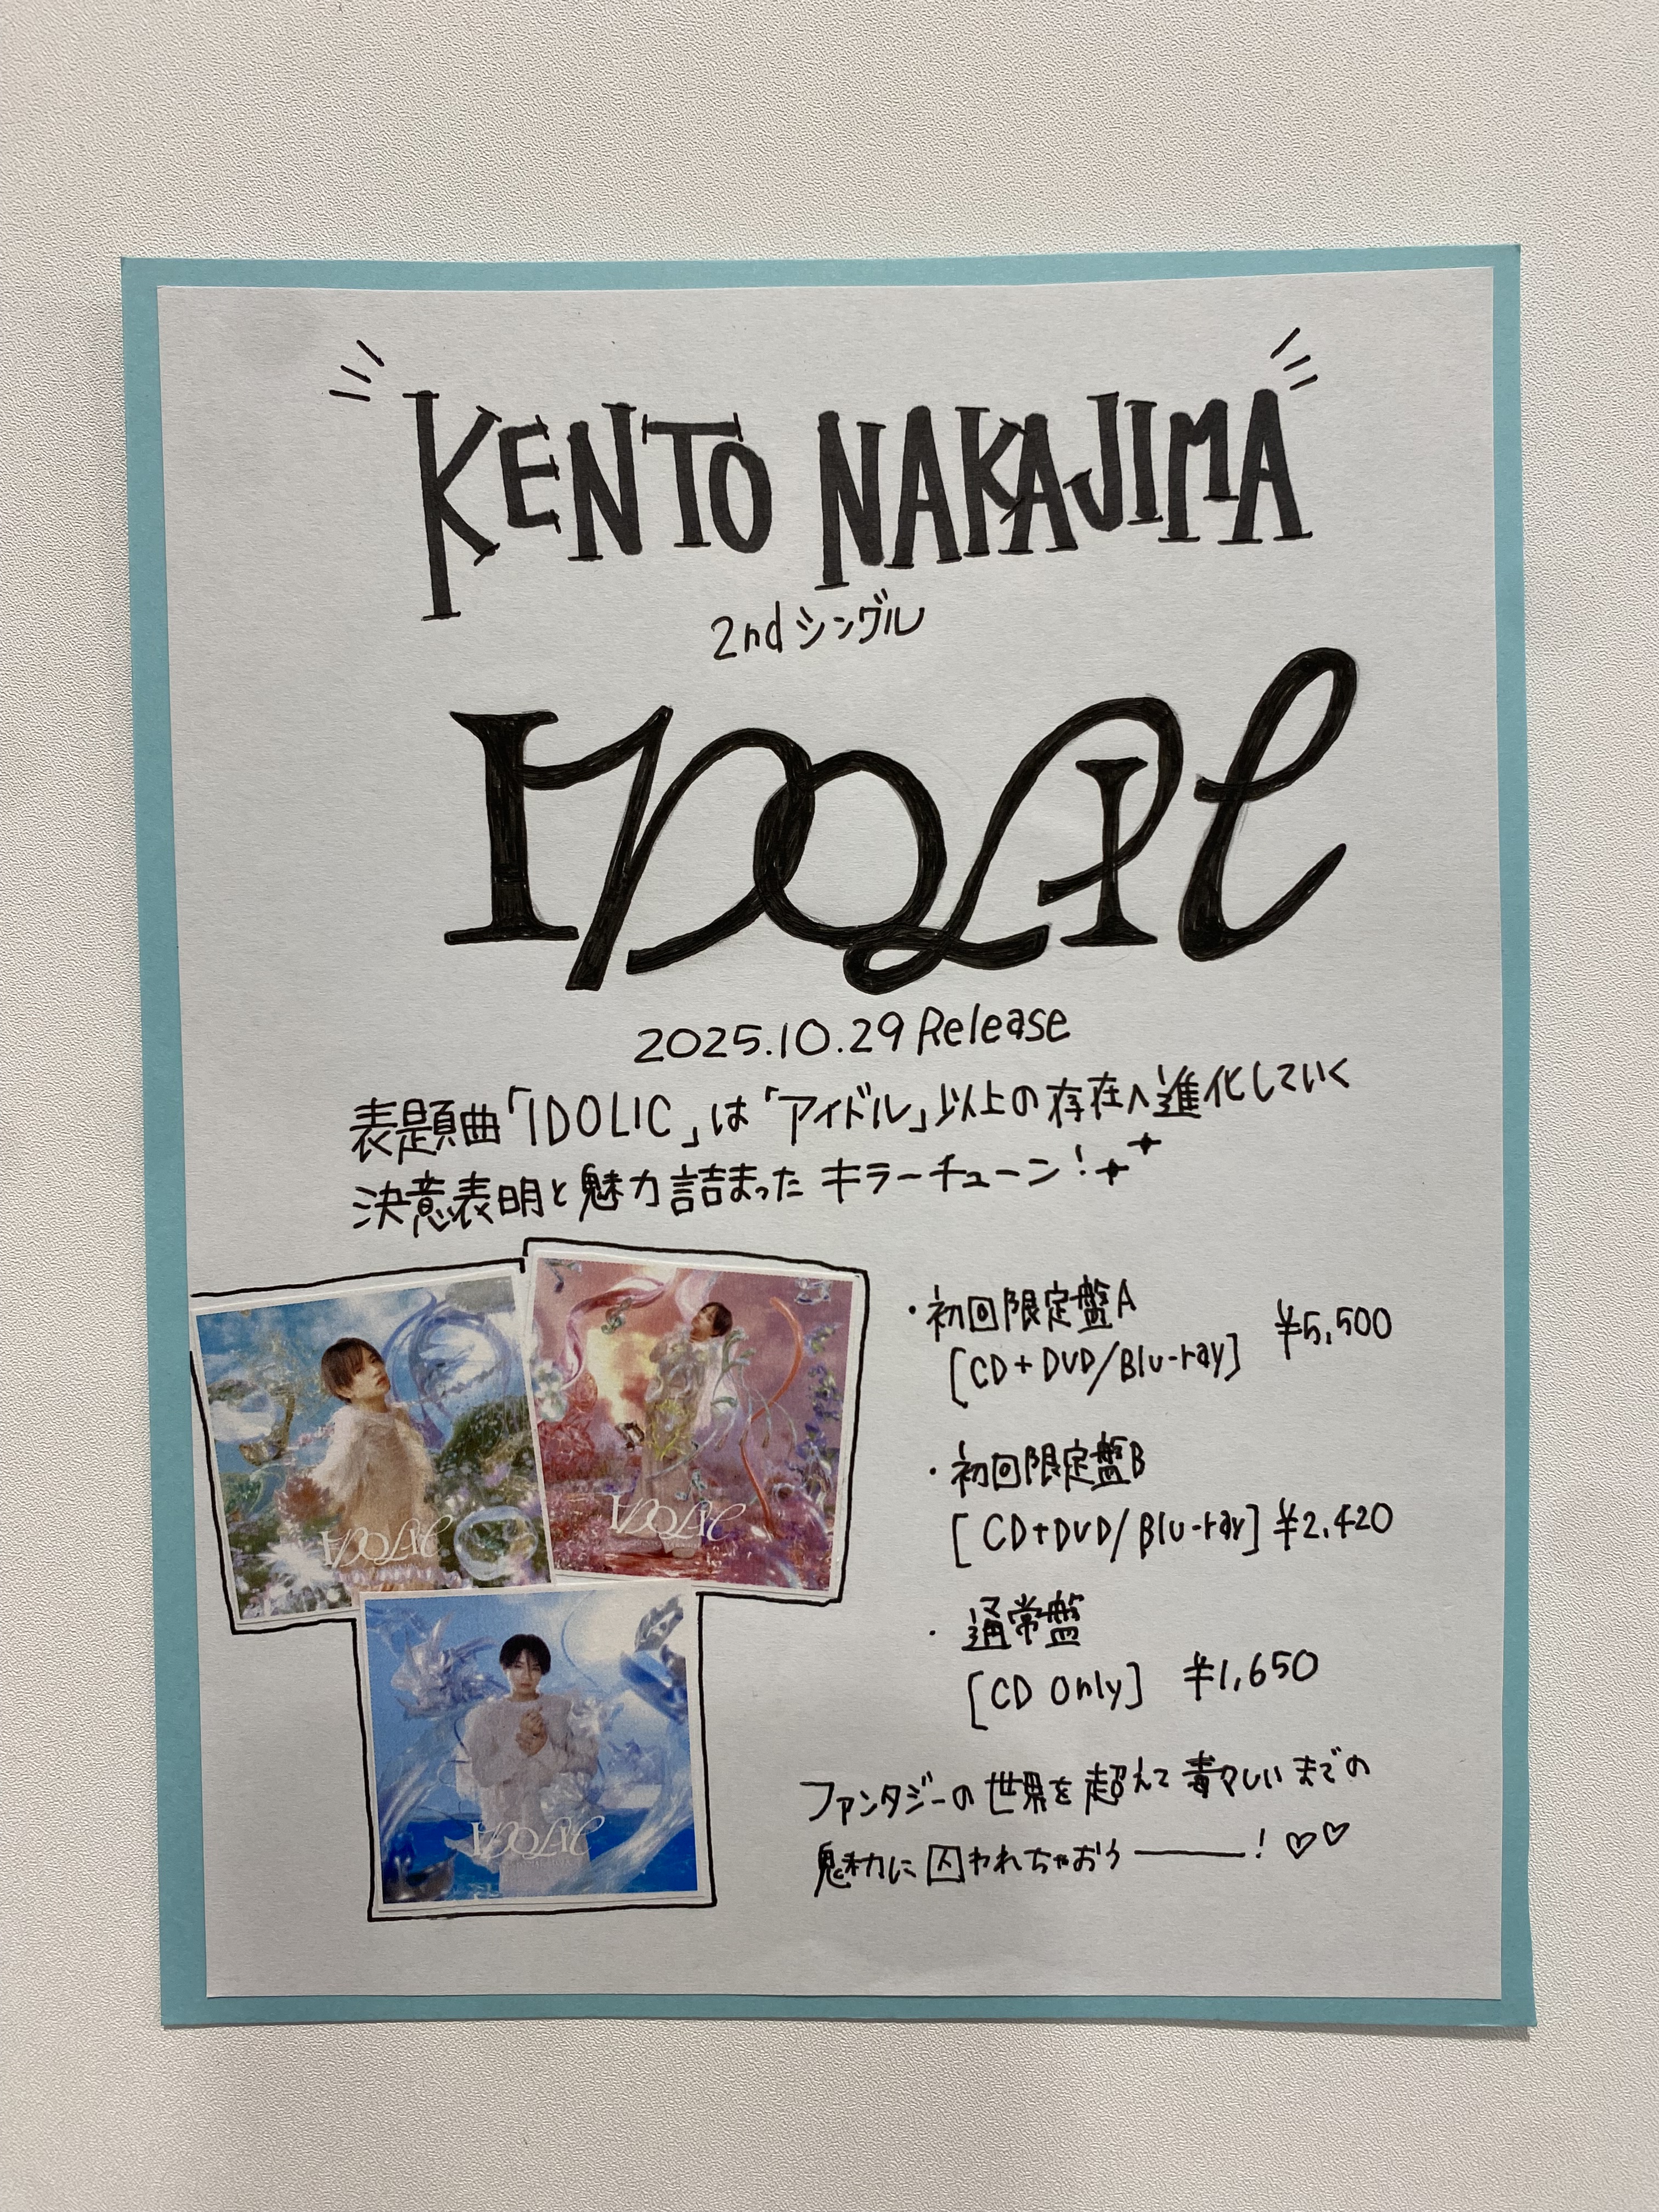 KENTO NAKAJIMA
2ndシングル
IDOLIC
2025.10.29 Release
表題曲「IDOLIC」は「アイドル」以上の存在へ進化していく
決意表明と魅力詰まったキラーチューン!
IDOLIC
IDOLIC
IDOLIC
・初回限定盤A
[CD+DVD/Blu-ray] ¥5,500
・初回限定盤B
[CD+DVD/Blu-ray] ¥2,420
・通常盤
[CD Only] ¥1,650
ファンタジーの世界を超えて毒々しいまでの
魅力に囚われちゃおう――! ♡♡